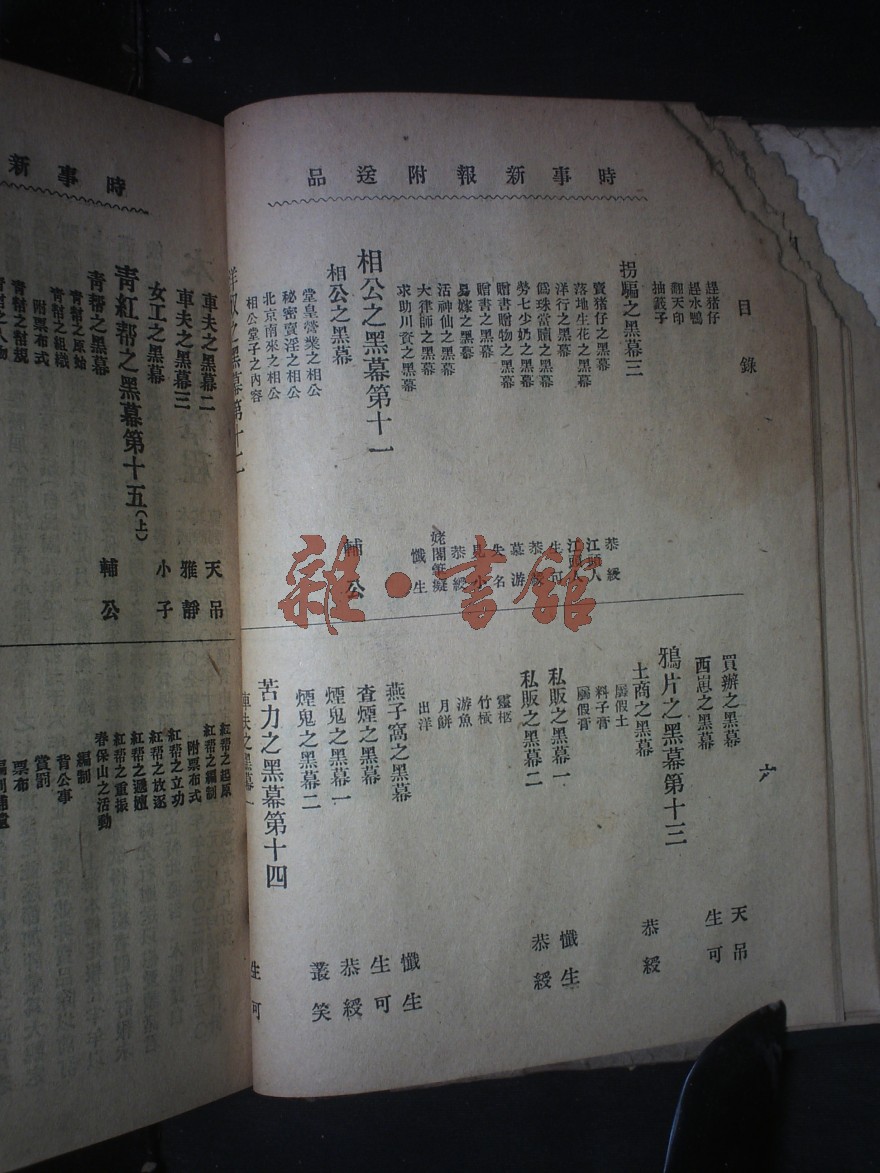 時事新報附送品
目錄
六
趕猪仔
趕水鴨
翻天印
抽籤子
拐騙之黑幕三
賣猪仔之黑幕
恭綬
落地生花之黑幕
江頭人
洋行之黑幕
江頭人
僞珠當贖之黑幕
生可
勞七少奶之黑幕
恭綬
贈書贈物之黑幕
慕游
贈書之黑幕
失名
易嫁之黑幕
見小
活神仙之黑幕
恭綬
大律師之黑幕
求助川資之黑幕
懺生
相公之黑幕第十一
相公之黑幕
輔公
堂皇營業之相公
秘密賣淫之相公
北京南來之相公
相公堂子之內容
之黑幕第十二
買辦之黑幕
天吊
西崽之黑幕
生可
鴉片之黑幕第十三
土商之黑幕
恭綬
屬假土
料子膏
屬假膏
私販之黑幕一
懺生
私販之黑幕二
恭綬
靈柩
竹槓
游魚
月餅
出洋
燕子窩之黑幕
懺生
查煙之黑幕
生可
煙鬼之黑幕一
恭綬
煙鬼之黑幕二
叢笑
苦力之黑幕第十四
車夫之黑幕一
生可
時事新
車夫之黑幕二
天吊
車夫之黑幕三
雅靜
女工之黑幕
小子
青紅帮之黑幕第十五(上)
青帮之黑幕
輔公
青幇之原始
青幇之組織
附票布式
青幇之幇規
青幇之人物
紅帮之起原
紅帮之編制
附票布式
紅帮之立功
紅帮之放逐
紅帮之遞嬗
紅帮之重振
春保山之活動
編制
背公事
賞罰
票布
雜·書館